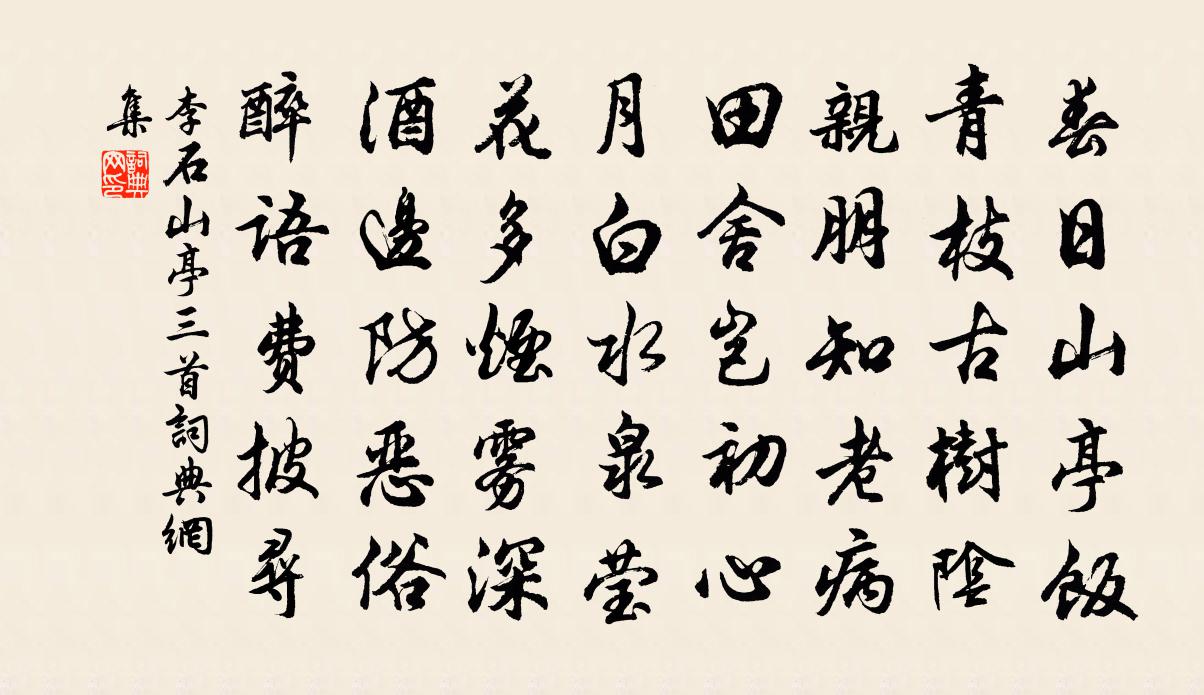 春日山亭飯
青枝古樹陰
親朋知老病
田舍豈初心
月白水泉瑩
花多煙雾深
酒邊防惡俗
醉語費披尋
李石山亭三首詞典網
集
詞典
网印